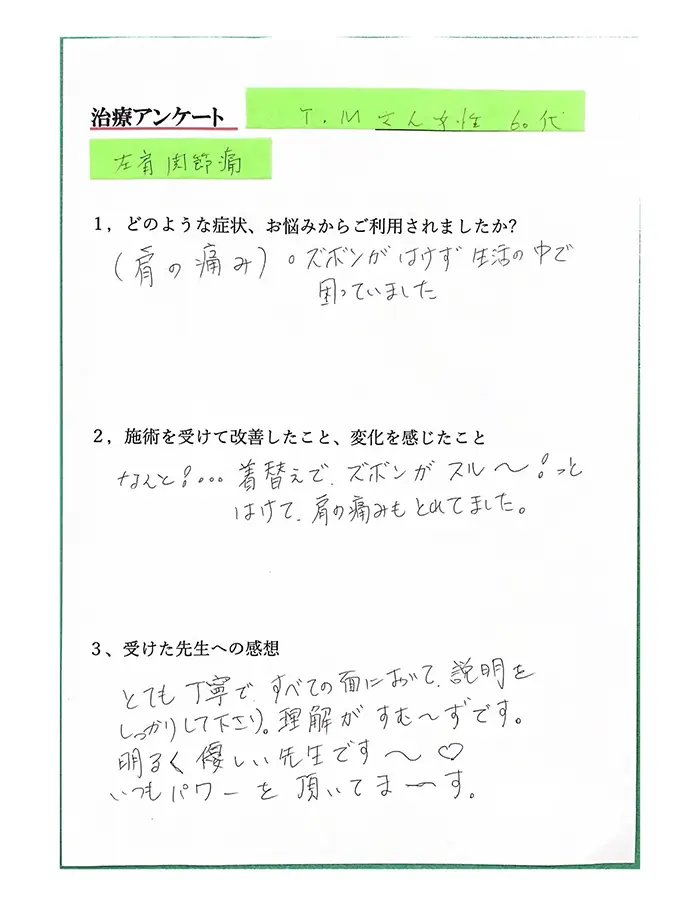 治療アンケート T.Mさん女性 60代
左肩関節痛
1，どのような症状、お悩みからご利用されましたか?
(肩の痛み)。ズボンがはけず生活の中で
困っていました
2，施術を受けて改善したこと、変化を感じたこと
なんと!… 着替えで、ズボンがスル〜!っと
はけて、肩の痛みもとれてました。
3、受けた先生への感想
とても丁寧で、すべての面において、説明を
しっかりして下さり。理解がすむ〜ずです。
明るく優しい先生です〜♡
いつもパワーを頂いてまーーす。